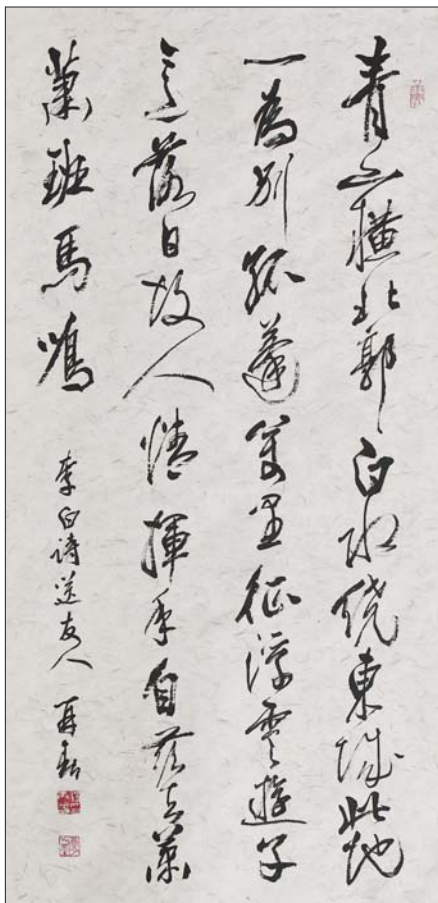 青山橫北郭白水绕東城此地
一為别孤蓬萬里征浮雲遊子
意落日故人情揮手自茲去蕭
蕭班馬鳴
李白诗送友人